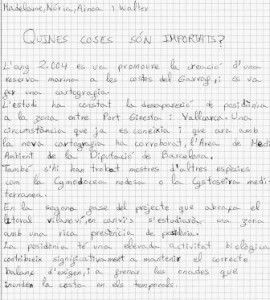 Madelaine, Núria, Ainoa i Walter
QUINES COSES SÓN IMPORTATS?
L'any 2.004 es va promoure la creació d'una
reserva marina a les costes del Garraf, i es va
fer una cartografia.
L'estudi ha constat la desaparició de posidònia
a la zona entre Port Ginesta i Vallcarca. Una
circumstància que ja es coneixia i que ara amb
la nova cartografia ha corroborat, l'Àrea de Medi
Ambient de la Diputació de Barcelona.
També s'hi han trobat mostres d'altres espècies
com la Cymodocea nodosa o la Cystoseira medi-
terranea.
En la segona fase del projecte que abraça el
litoral vilanoví, en canvi s'estudiarà una zona
amb una rica presència de posidònia.
La posidònia té una elevada activitat biològica
contribueix significativament a mantenir el correcte
balanç d'oxigen, i a frenar les onades que
inunden la costa en els temporals.